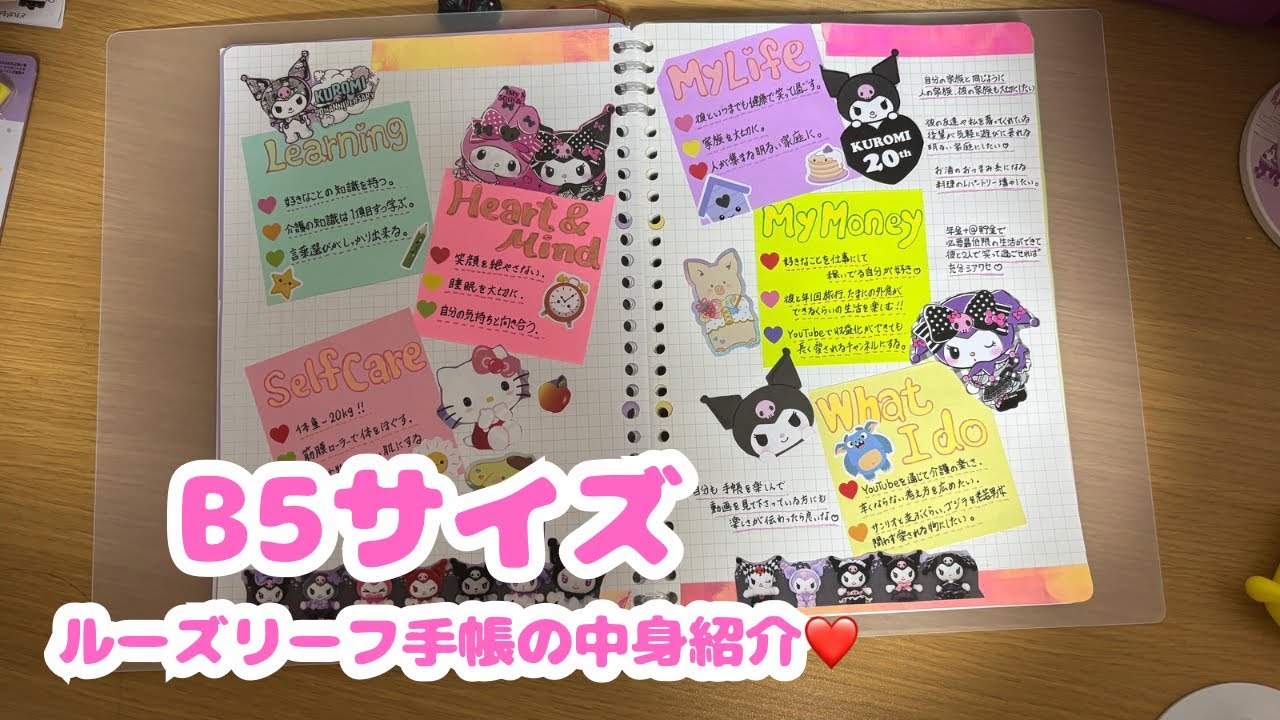 KUROMI
Learning
好きなことの知識を持つ。
介護の知識は1項目ずつ学ぶ。
言葉選びがしっかり出来る。
Heart &
Mind
笑顔を絶やさない。
睡眠を大切に。
自分の気持ちと向き合う。
Self Care
体重-20kg!!
筋膜ローラーで体をほぐす。
肌にする
My Life
彼といつまでも健康で笑って過ごす。
家族を大切に。
人が集まる明るい家庭に。
KUROMI
20th
自分の家族と同じように
人の家族、彼の家族も大切にしたい
彼の友達や私を慕ってくれている
後輩が気軽に遊びに来れる
明るい家庭にしたい♡
お酒のおつまみ系になる
料理のレパートリー増やしたい。
My Money
好きなことを仕事にして
稼いでる自分が好き♡
彼と年1回旅行、たまにの外食が
できるくらいの生活を楽しむ!!
YouTubeで収益化ができても
長く愛されるチャンネルにする。
年金+@貯金で
必要最低限の生活ができて
彼と2人で笑って過ごせれば
充分シアワセ♡
What
I do
YouTubeを通じて介護の楽しさ、
辛くならない考え方を広めたい。
サンリオと並ぶくらい、ゴジラを老若男女
問わず愛される物にしたい。
自分も手帳を楽しんで
動画を見て下さっている方にも
楽しさが伝わったら良いな♡
B5サイズ
ルーズリーフ手帳の中身紹介❤️